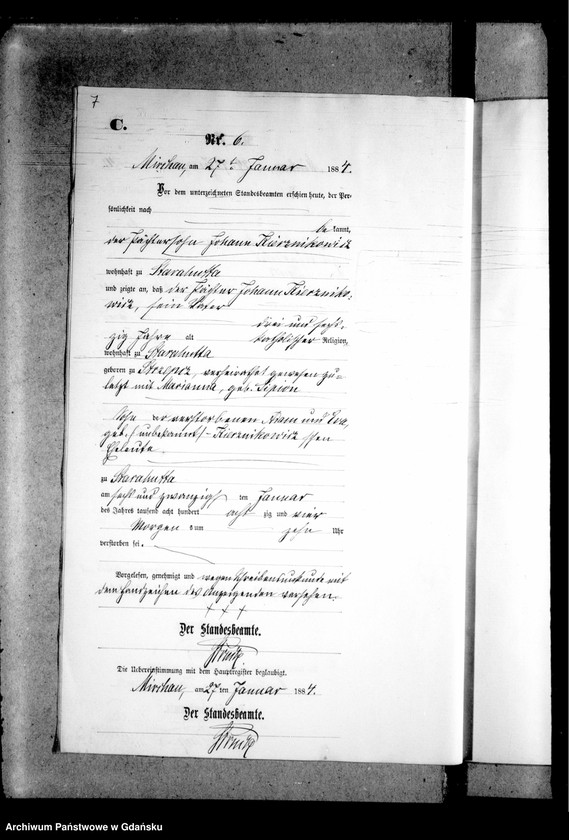 7
C.
Nr. 6.
Mirchau, am 27 t. Januar 1884.
Vor dem unterzeichneten Standesbeamten erschien heute, der Per-
sönlichkeit nach
be kannt,
der Pächtersohn Johann Kierznikowicz
wohnhaft zu Starahutta
und zeigte an, daß der Pächter Johann Kierzniko-
wicz, sein Vater
drei und sech-
zig Jahre alt katholischer Religion,
wohnhaft zu Starahutta
geboren zu verheirathet gewesen zu-
letzt mit Marianna, geb.
Sohn der verstorbenen Adam und Eva,
geb. (unbekannt) Kierznikowicz'schen
Eheleute
zu Starahutta
am sechs und zwanzigsten Januar
des Jahres tausend acht hundert acht zig und vier
Morgens um zehn Uhr
verstorben sei.
Vorgelesen, genehmigt und wegen Schreibensunkunde mit
dem Handzeichen des Anzeigenden versehen.
+ + +
Der Standesbeamte.
Die Uebereinstimmung mit dem Hauptregister beglaubigt.
Mirchau, am 27 ten Januar 1884.
Der Standesbeamte.
Archiwum Państwowe w Gdańsku